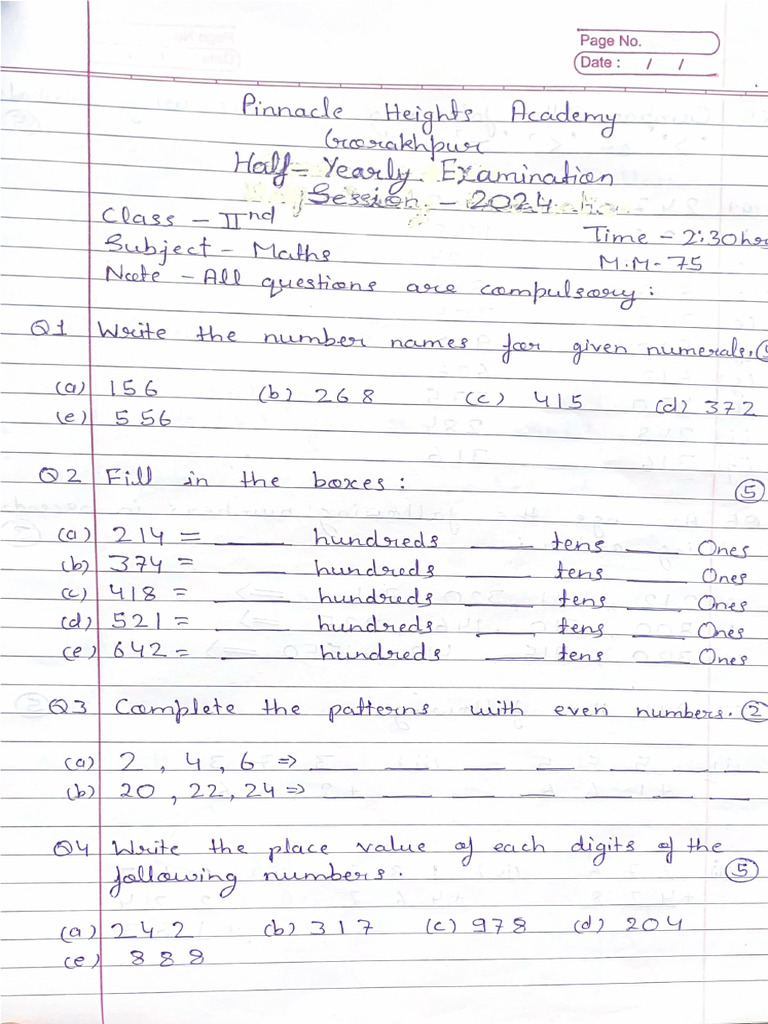 Page No.
Date : / /
Pinnacle Heights Academy
Goorakhpur
Half-Yearly Examination
Session - 2024
Class - IInd
Time - 2:30 hrs
Subject - Maths
M.M-75
Note - All questions are compulsory :
Q1 Write the number names for given numerals.
(a) 156 (b) 268 (c) 415 (d) 372
(e) 556
Q2 Fill in the boxes : 5
(a) 214 = ____ hundreds ____ tens ____ Ones
(b) 374 = ____ hundreds ____ tens ____ Ones
(c) 418 = ____ hundreds ____ tens ____ Ones
(d) 521 = ____ hundreds ____ tens ____ Ones
(e) 642 = ____ hundreds ____ tens ____ Ones
Q3 Complete the patterns with even numbers. 2
(a) 2 , 4 , 6 => __ __ __ __ __ __ __
(b) 20 , 22, 24 => __ __ __ __ __ __ __
Q4 Write the place value of each digits of the
following numbers. 5
(a) 242 (b) 317 (c) 978 (d) 204
(e) 888